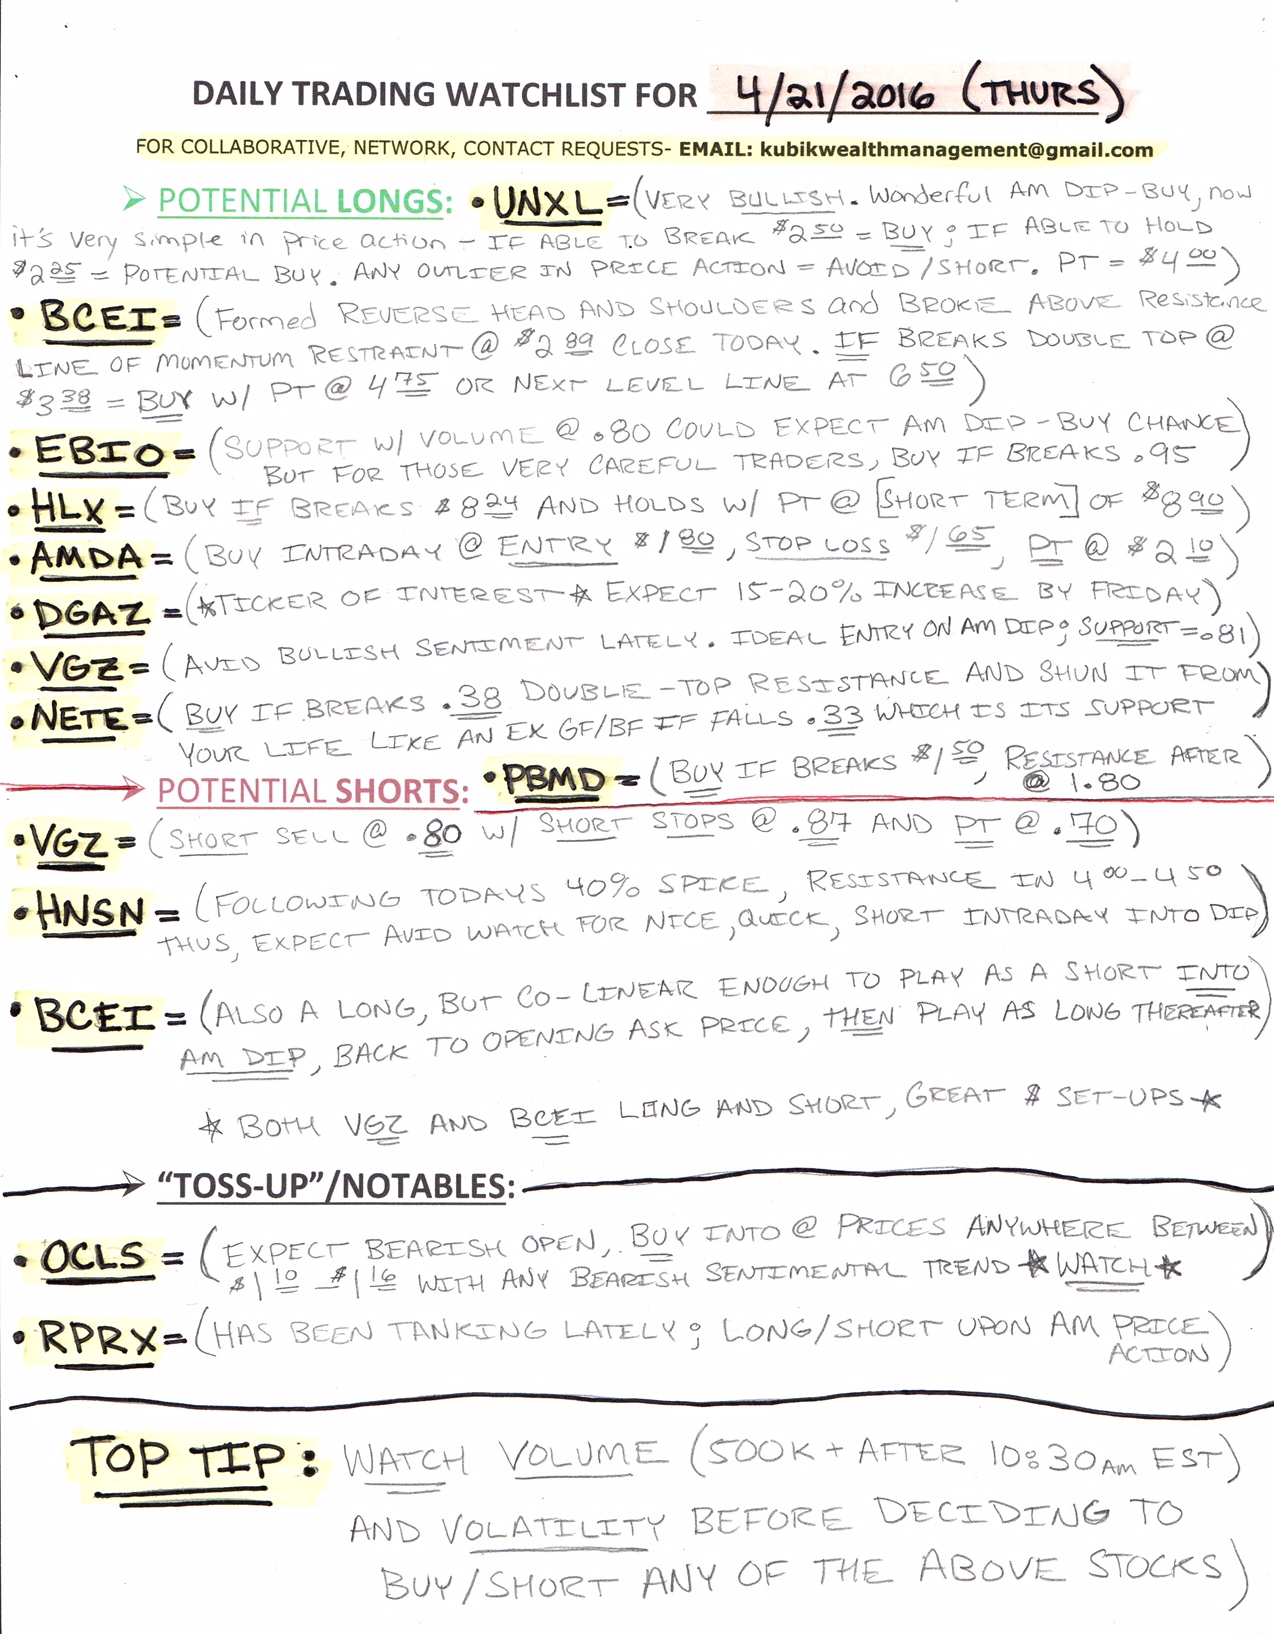 DAILY TRADING WATCHLIST FOR 4/21/2016 (THURS)
FOR COLLABORATIVE, NETWORK, CONTACT REQUESTS- EMAIL: kubikwealthmanagement@gmail.com
➢ POTENTIAL LONGS: • UNXL = (VERY BULLISH. Wonderful AM DIP-BUY, now
it's very simple in price action - IF ABLE TO BREAK $2.50 = BUY; IF ABLE TO HOLD
$2.25 = POTENTIAL BUY. ANY OUTLIER IN PRICE ACTION = AVOID/SHORT. PT = $4.00)
• BCEI = (Formed REVERSE HEAD AND SHOULDERS and BROKE ABOVE Resistance
LINE OF MOMENTUM RESTRAINT @ $2.89 CLOSE TODAY. IF BREAKS DOUBLE TOP @
$3.38 = BUY W/ PT @ 4.75 OR NEXT LEVEL LINE AT 6.50)
• EBIO = (SUPPORT W/ VOLUME @ .80 COULD EXPECT AM DIP-BUY CHANCE
BUT FOR THOSE VERY CAREFUL TRADERS, BUY IF BREAKS .95)
• HLX = (BUY IF BREAKS $8.24 AND HOLDS W/ PT @ [SHORT TERM] OF $8.90)
• AMDA = (BUY INTRADAY @ ENTRY $1.80, STOP LOSS $1.65, PT @ $2.10)
• DGAZ = (*TICKER OF INTEREST* EXPECT 15-20% INCREASE BY FRIDAY)
• VGZ = (AVID BULLISH SENTIMENT LATELY. IDEAL ENTRY ON AM DIP; SUPPORT = .81)
• NETE = (BUY IF BREAKS .38 DOUBLE-TOP RESISTANCE AND SHUN IT FROM
YOUR LIFE LIKE AN EX GF/BF IF FALLS .33 WHICH IS ITS SUPPORT)
• PBMD = (BUY IF BREAKS $1.50, RESISTANCE AFTER
@ 1.80)
➢ POTENTIAL SHORTS:
• VGZ = (SHORT SELL @ .80 W/ SHORT STOPS @ .87 AND PT @ .70)
• HNSN = (FOLLOWING TODAYS 40% SPIKE, RESISTANCE IN 4.00-4.50
THUS, EXPECT AVID WATCH FOR NICE, QUICK, SHORT INTRADAY INTO DIP)
• BCEI = (ALSO A LONG, BUT CO-LINEAR ENOUGH TO PLAY AS A SHORT INTO
AM DIP, BACK TO OPENING ASK PRICE, THEN PLAY AS LONG THEREAFTER)
* BOTH VGZ AND BCEI LONG AND SHORT, GREAT $ SET-UPS *
➢ "TOSS-UP"/NOTABLES:
• OCLS = (EXPECT BEARISH OPEN, BUY INTO @ PRICES ANYWHERE BETWEEN
$1.10 - $1.16 WITH ANY BEARISH SENTIMENTAL TREND *WATCH*)
• RPRX = (HAS BEEN TANKING LATELY; LONG/SHORT UPON AM PRICE
ACTION)
TOP TIP: WATCH VOLUME (500K+ AFTER 10:30AM EST)
AND VOLATILITY BEFORE DECIDING TO
BUY/SHORT ANY OF THE ABOVE STOCKS)